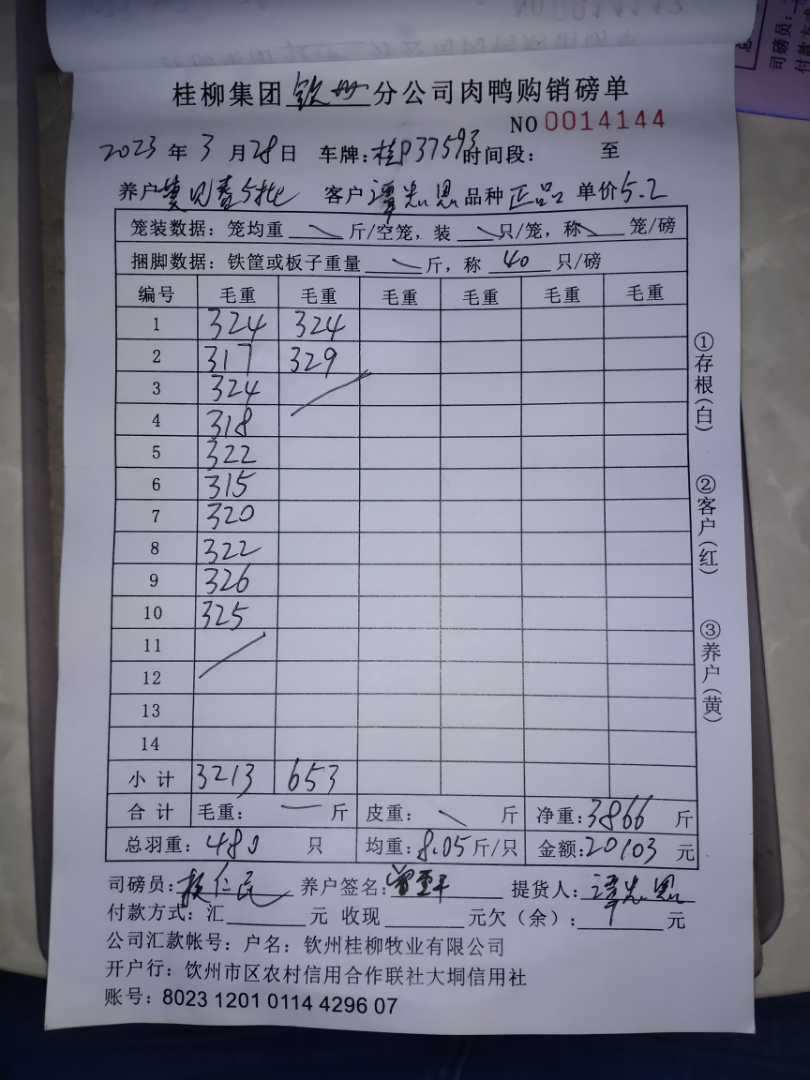 桂柳集团 钦州 分公司肉鸭购销磅单
NO 0014144
2023 年 3 月 28 日 车牌: 桂P37593 时间段: 至
养户 5批 客户 谭光恩 品种 正品 单价 5.2
笼装数据: 笼均重 斤/空笼, 装 只/笼, 称 笼/磅
捆脚数据: 铁筐或板子重量 斤, 称 40 只/磅
编号 毛重 毛重 毛重 毛重 毛重 毛重
1 324 324
2 317 329
3 324
4 318
5 322
6 315
7 320
8 322
9 326
10 325
11
12
13
14
小计 3213 653
合计 毛重: 斤 皮重: 斤 净重: 3866 斤
总羽重: 480 只 均重: 8.05 斤/只 金额: 20103 元
司磅员: 仁民 养户签名: 提货人: 谭光恩
付款方式: 汇 元 收现 元欠(余): 元
公司汇款帐号: 户名: 钦州桂柳牧业有限公司
开户行: 钦州市区农村信用合作联社大垌信用社
账号: 8023 1201 0114 4296 07
①存根(白)
②客户(红)
③养户(黄)
司磅员: